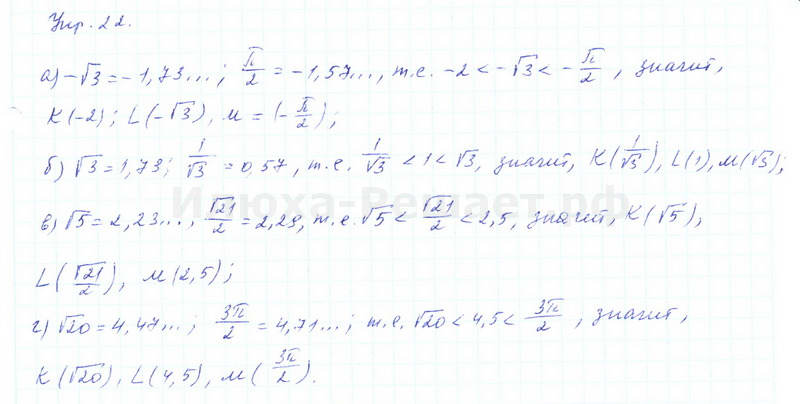 Упр. 22.
а) -√3 = -1,73...; π/2 = -1,57..., т.е. -2 < -√3 < -π/2, значит,
K(-2); L(-√3), M = (-π/2);
б) √3 = 1,73; 1/√3 = 0,57, т.е. 1/√3 < 1 < √3, значит, K(1/√3), L(1), M(√3);
Илюха-Решает.рф
в) √5 = 2,23..., √21/2 = 2,29, т.е. √5 < √21/2 < 2,5, значит, K(√5),
L(√21/2), M(2,5);
г) √20 = 4,47...; 3π/2 = 4,71...; т.е. √20 < 4,5 < 3π/2, значит,
K(√20), L(4,5), M(3π/2).